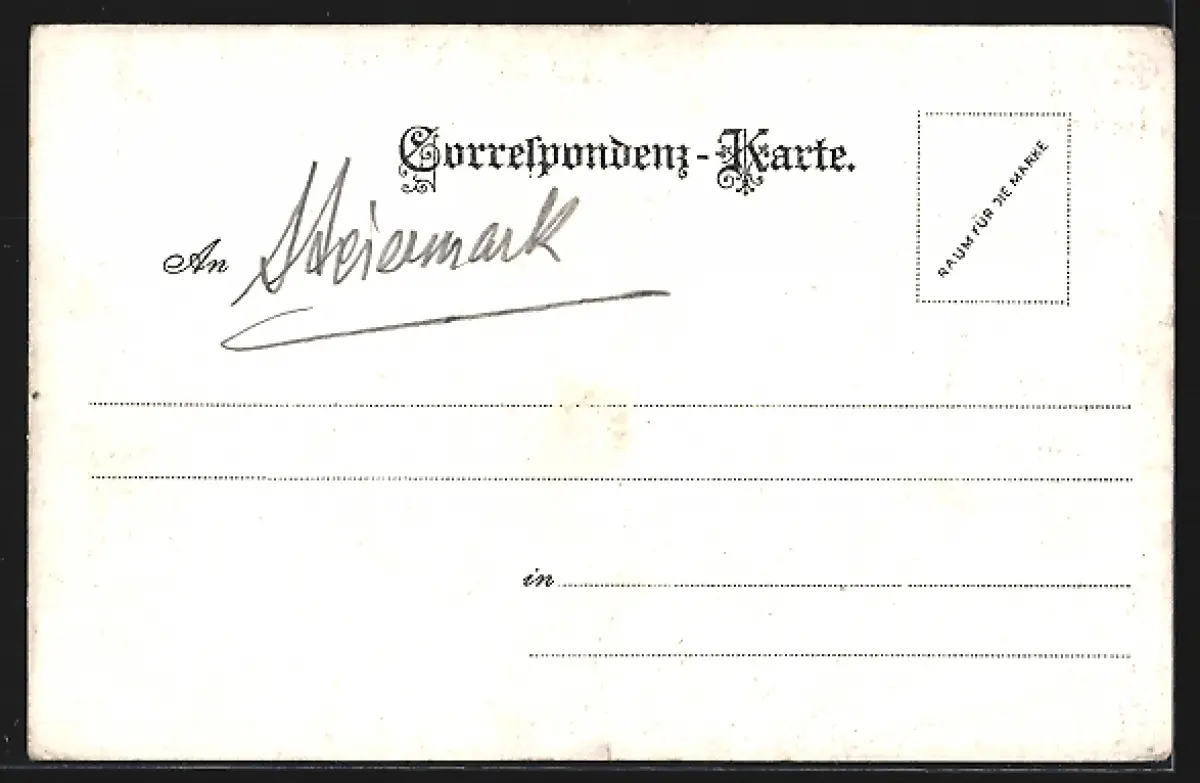 Correſpondenz-Karte.
RAUM FÜR DIE MARKE
An Steiermark
in